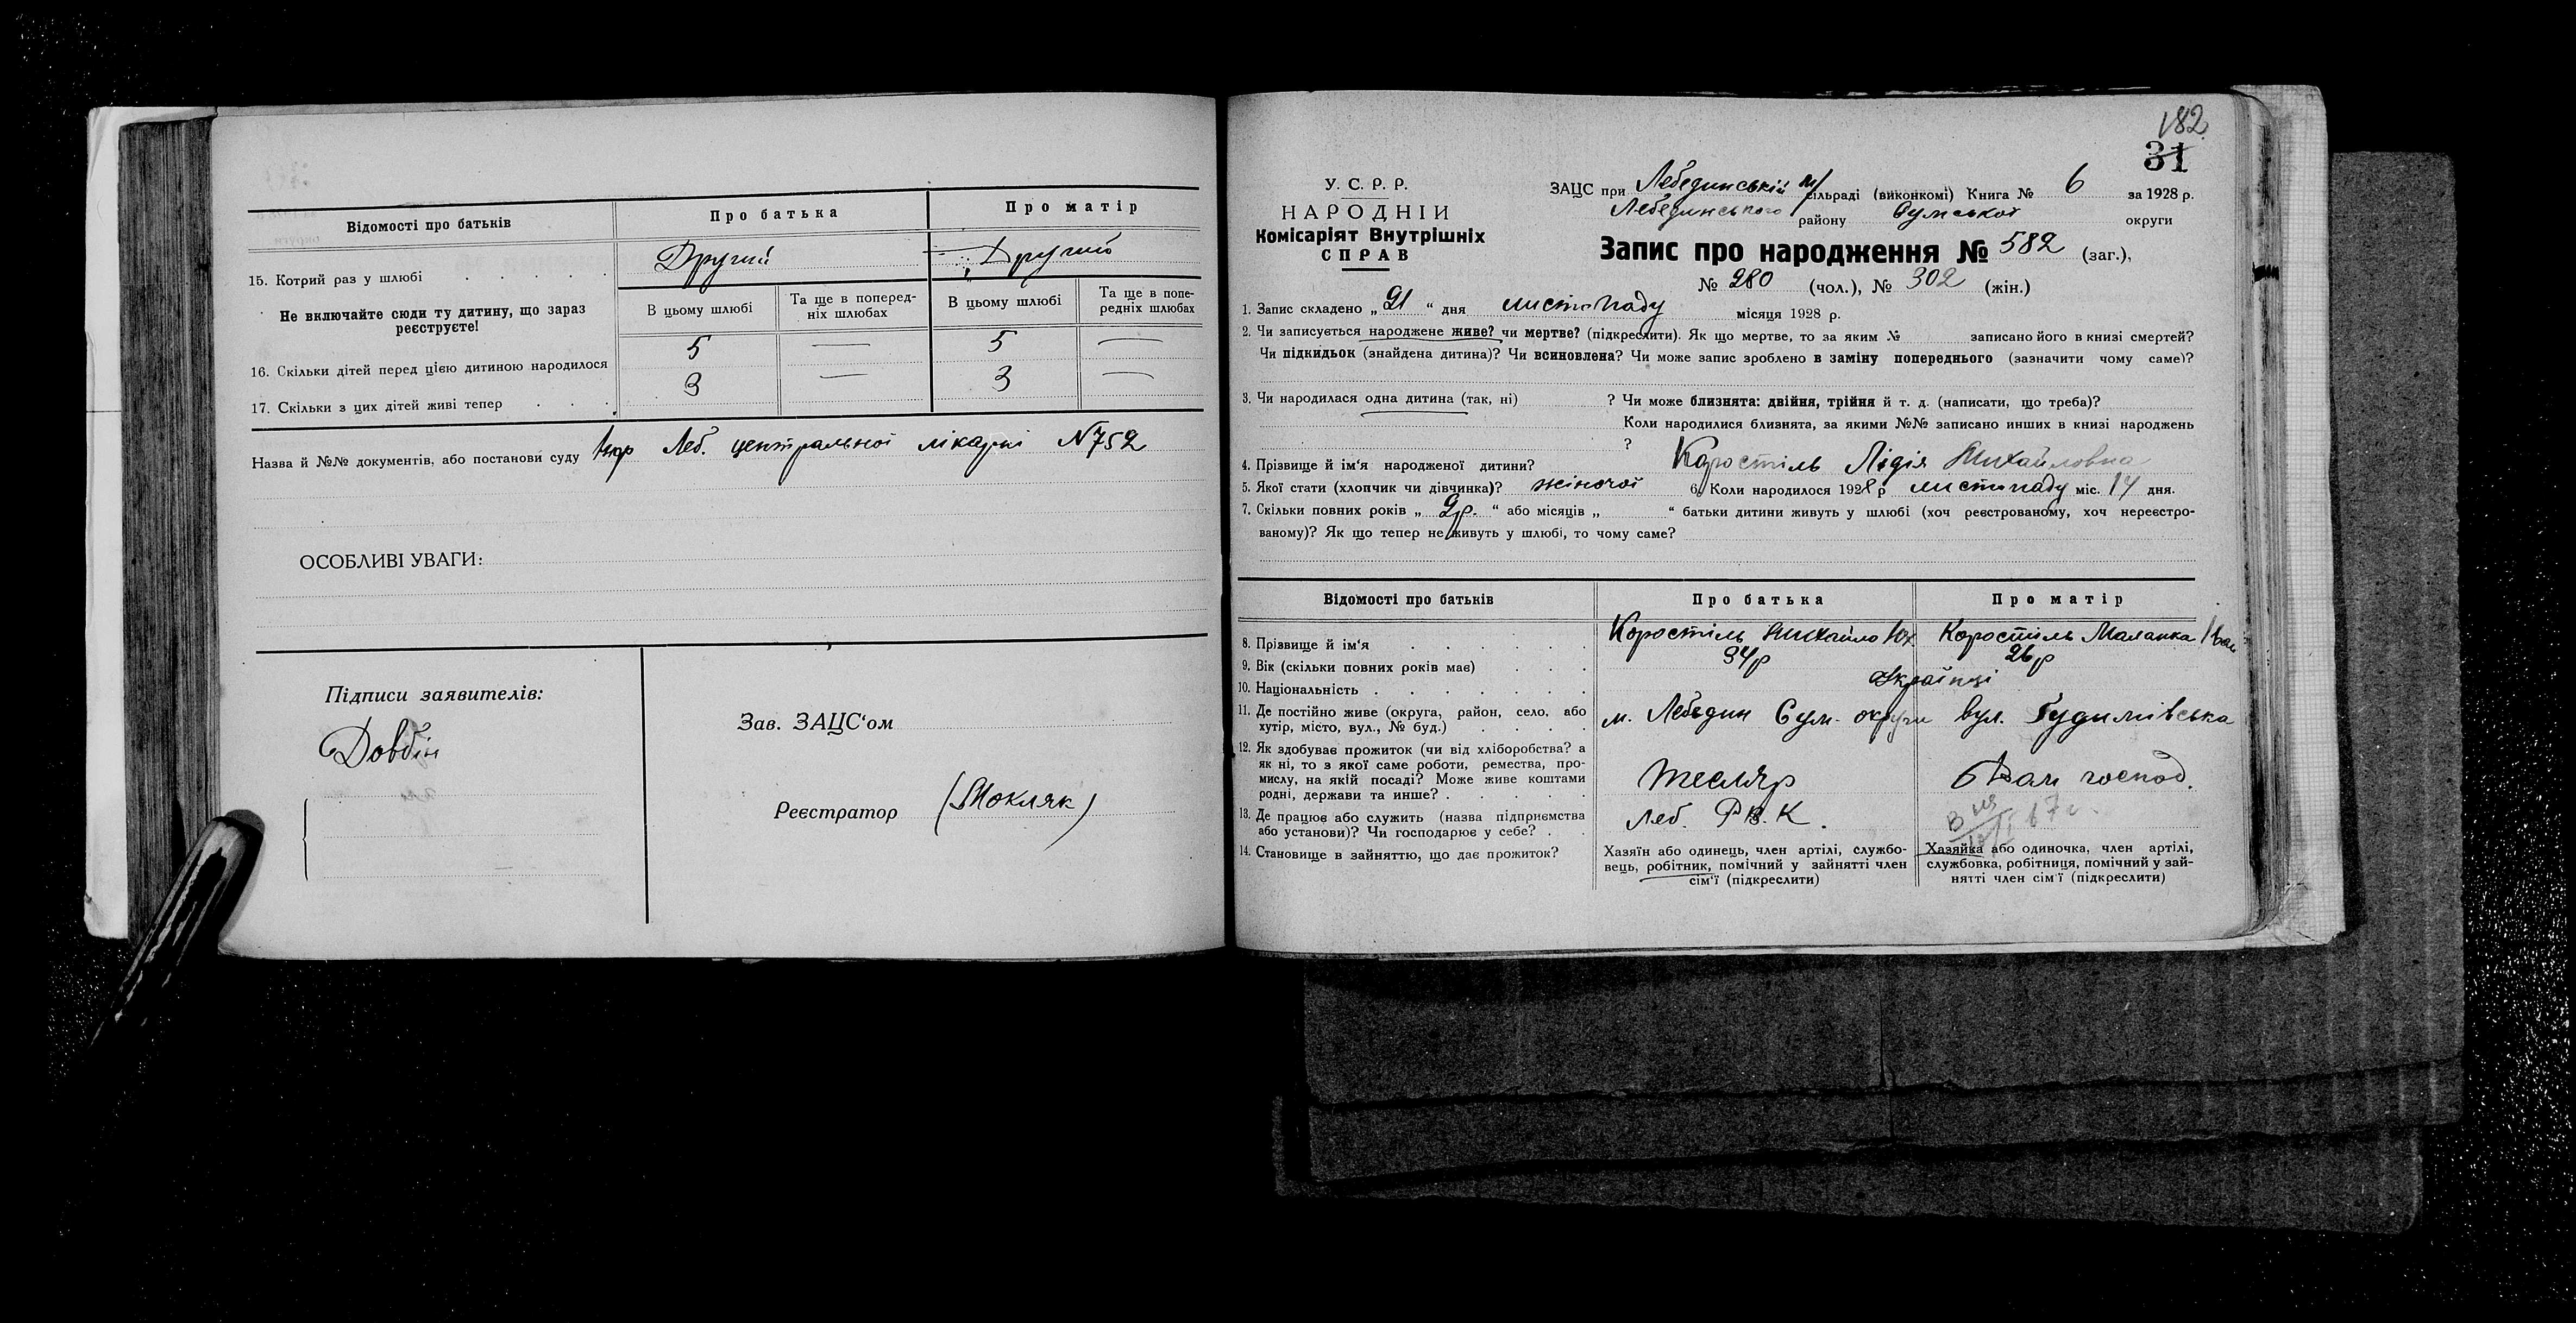 Відомості про батьків
Про батька
Про матір
15. Котрий раз у шлюбі
Другий
Другий
Не включайте сюди ту дитину, що зараз реєструєте!
В цьому шлюбі
Та ще в поперед-
ніх шлюбах
В цьому шлюбі
Та ще в попе-
редніх шлюбах
16. Скільки дітей перед цією дитиною народилося
5
—
5
—
17. Скільки з цих дітей живі тепер
3
—
3
—
Назва й №№ документів, або постанови суду
Леб. центральної лікарні №752
ОСОБЛИВІ УВАГИ:
Підписи заявителів:
Довбін
Зав. ЗАЦС‘ом
Реєстратор (Мокляк)
182
31
У. С. Р. Р.
НАРОДНІЙ
Комісаріят Внутрішніх
СПРАВ
ЗАЦС при Лебединській м/сільраді (виконкомі) Книга № 6 за 1928 р.
Лебединського району Сумської округи
Запис про народження № 582 (заг.),
№ 280 (чол.), № 302 (жін.)
1. Запис складено „21“ дня листопаду місяця 1928 р.
2. Чи записується народжене живе? чи мертве? (підкреслити). Як що мертве, то за яким № записано його в книзі смертей?
Чи підкидьок (знайдена дитина)? Чи всиновлена? Чи може запис зроблено в заміну попереднього (зазначити чому саме)?
3. Чи народилася одна дитина (так, ні) ? Чи може близнята: двійня, трійня й т. д. (написати, що треба)?
Коли народилися близнята, за якими №№ записано инших в книзі народжень
?
4. Прізвище й ім‘я народженої дитини? Коростіль Лідія Михайловна
5. Якої стати (хлопчик чи дівчинка)? жіночої 6. Коли народилося 1928 р листопаду міс. 14 дня.
7. Скільки повних років „9р.“ або місяців „ “ батьки дитини живуть у шлюбі (хоч реєстрованому, хоч нереєстро-
ваному)? Як що тепер не живуть у шлюбі, то чому саме?
Відомості про батьків
Про батька
Про матір
8. Прізвище й ім‘я
Коростіль Михайло Юх.
Коростіль Маланка Іван
9. Вік (скільки повних років має)
34р
26р
10. Національність
Українці
11. Де постійно живе (округа, район, село, або
хутір, місто, вул., № буд.)
м. Лебедин Сум. округи вул. Гудимівська
12. Як здобуває прожиток (чи від хліборобства? а
як ні, то з якої саме роботи, ремества, про-
мислу, на якій посаді? Може живе коштами
родні, держави та инше?
тесляр
господ.
13. Де працює або служить (назва підприємства
або установи)? Чи господарює у себе?
Леб. РВ.К.
14. Становище в зайняттю, що дає прожиток?
Хазяїн або одинець, член артілі, службо-
вець, робітник, помічний у зайнятті член
сім‘ї (підкреслити)
Хазяйка або одиночка, член артілі,
службовка, робітниця, помічний у зай-
нятті член сім‘ї (підкреслити)